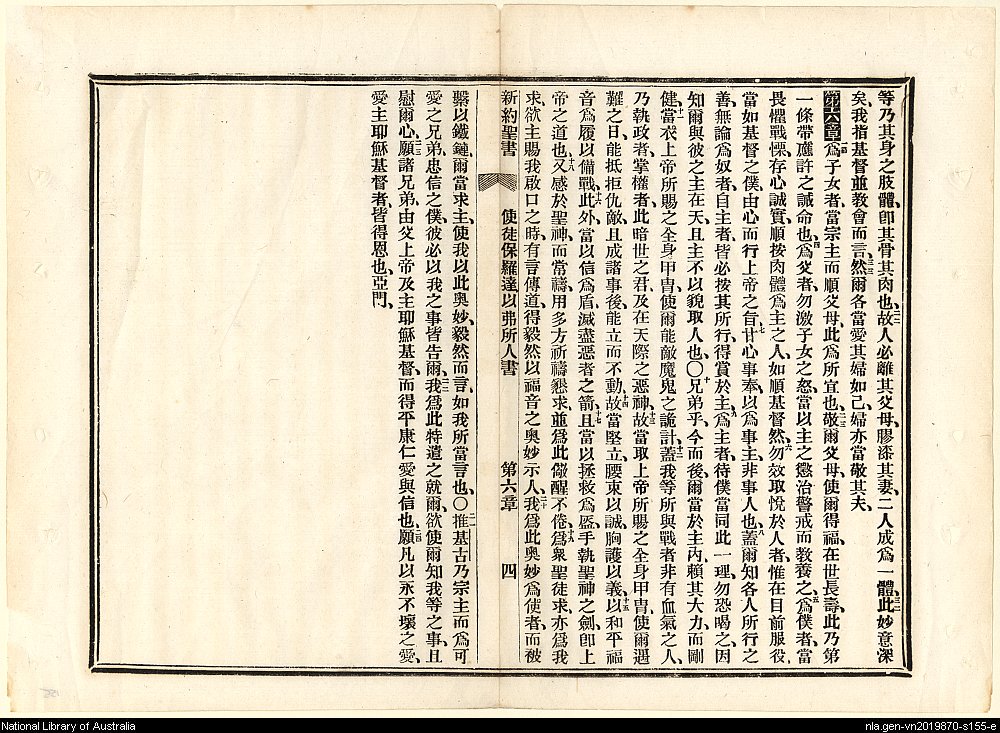 等乃其身之肢體、卽其骨其肉也、三一故人必離其父母、膠漆其妻、二人成爲一體、三二此妙意深
矣、我指基督並敎會而言、三三然爾各當愛其婦如己、婦亦當敬其夫、
第六章一爲子女者、當宗主而順父母、此爲所宜也、二三敬爾父母、使爾得福、在世長壽、此乃第
一條帶應許之誡命也、四爲父者、勿激子女之怒、當以主之懲治警戒而敎養之、五爲僕者、當
畏懼戰慄、存心誠實、順按肉體爲主之人、如順基督然、六勿效取悅於人者、惟在目前服役、
當如基督之僕、由心而行上帝之旨、七甘心事奉、以爲事主、非事人也、八蓋爾知各人所行之
善、無論爲奴者、自主者、皆必按其所行、得賞於主、九爲主者、待僕當同此一理、勿恐喝之、因
知爾與彼之主在天、且主不以貌取人也、〇十兄弟乎、今而後爾當於主內、賴其大力而剛
健、十一當衣上帝所賜之全身甲胄、使爾能敵魔鬼之詭計、十二蓋我等所與戰者、非有血氣之人、
乃執政者、掌權者、此暗世之君、及在天際之惡神、十三故當取上帝所賜之全身甲胄、使爾遇
難之日、能抵拒仇敵、且成諸事後、能立而不動、十四故當堅立、腰束以誠、胸護以義、十五以和平福
音爲履以備戰、十六此外當以信爲盾、滅盡惡者之箭、十七且當以拯救爲盔、手執聖神之劍、卽上
帝之道也、十八又感於聖神、而常禱、用多方祈禱懇求、並爲此儆醒不倦、爲衆聖徒求、十九亦爲我
求、欲主賜我啟口之時、有言傳道、得毅然以福音之奧妙示人、二十我爲此奧妙爲使者、而被
新約聖書 使徒保羅達以弗所人書 第六章 四
繫以鐵鏈、爾當求主、使我以此奧妙、毅然而言、如我所當言也、〇二一推基古乃宗主而爲可
愛之兄弟、忠信之僕、彼必以我之事皆告爾、二二我爲此特遣之就爾、欲使爾知我等之事、且
慰爾心、二三願諸兄弟由父上帝及主耶穌基督、而得平康仁愛與信也、二四願凡以永不壞之愛、
愛主耶穌基督者、皆得恩也、亞門、
National Library of Australia
nla.gen-vn2019870-s155-e